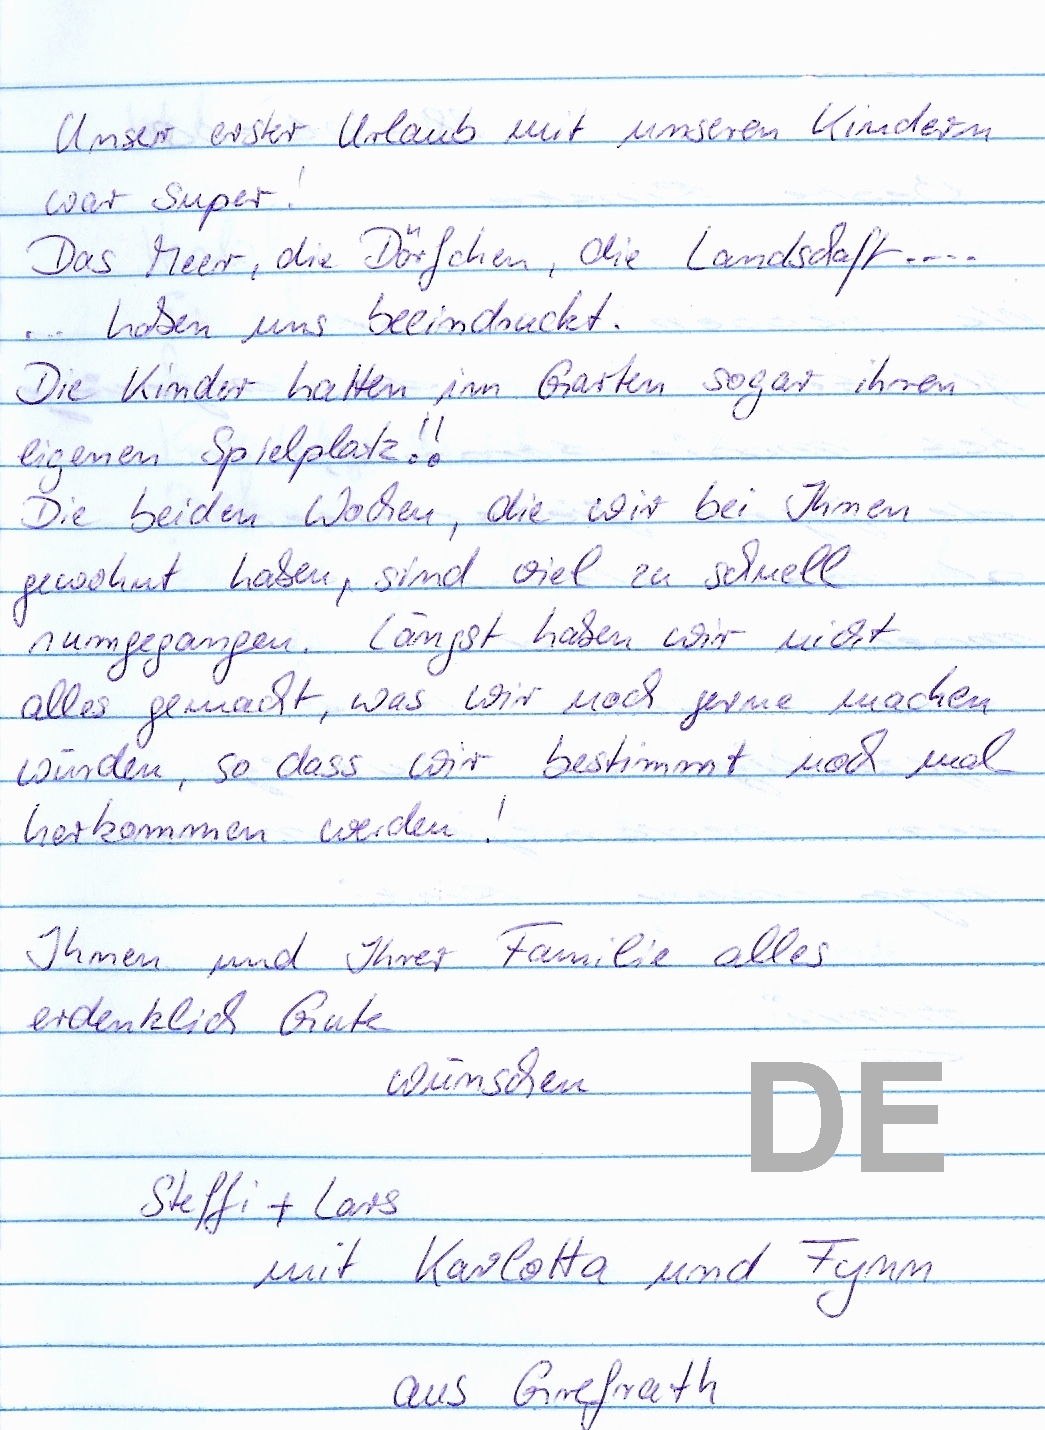 Unser erster Urlaub mit unseren Kindern
war super!
Das Meer, die Dörfchen, die Landschaft....
... haben uns beeindruckt.
Die Kinder hatten im Garten sogar ihren
eigenen Spielplatz!!
Die beiden Wochen, die wir bei Ihnen
gewohnt haben, sind viel zu schnell
rumgegangen. Längst haben wir nicht
alles gemacht, was wir noch gerne machen
würden, so dass wir bestimmt noch mal
herkommen werden!
Ihnen und Ihrer Familie alles
erdenklich Gute
wünschen
DE
Steffi + Lars
mit Karlotta und Fynn
aus Grefrath